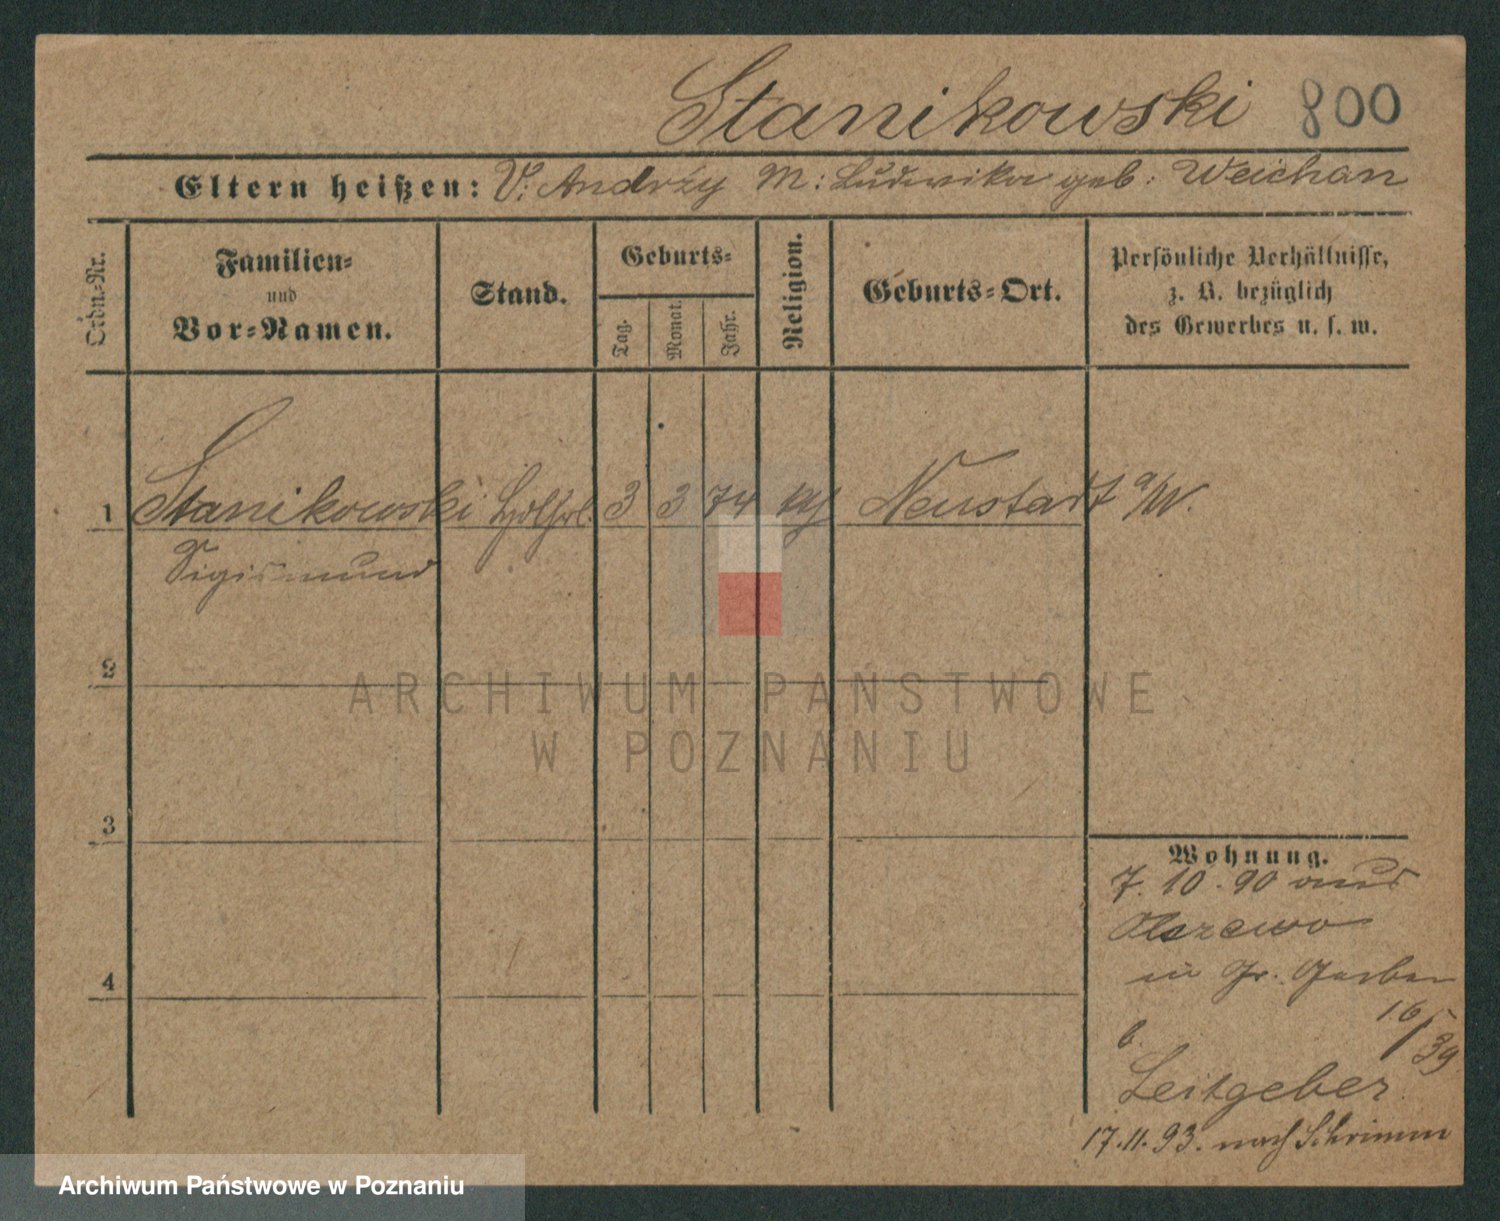 Stanikowski 800
Eltern heißen: V: Andrzy M: Ludwika geb: Weichan
Ordn.-Nr.
Familien-
und
Vor-Namen.
Stand.
Geburts-
Tag.
Monat.
Jahr.
Religion.
Geburts-Ort.
Persönliche Verhältnisse,
z. B. bezüglich
des Gewerbes u. s. w.
1 Stanikowski 3 3 74 Neustadt a/W.
Sigismund
2
3
4
Wohnung.
7. 10. 90 aus
Olszewo
in Gr. Gerber
16/39
b.
Leitgeber
17.11.93. nach Schrimm
ARCHIWUM PAŃSTWOWE
W POZNANIU
Archiwum Państwowe w Poznaniu